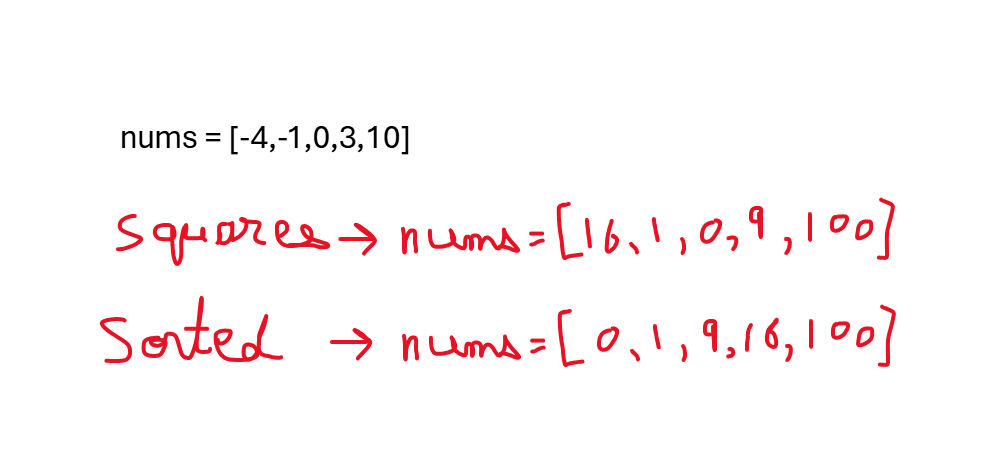 nums = [-4,-1,0,3,10]
Squares → nums=[16,1,0,9,100]
Sorted → nums=[0,1,9,16,100]